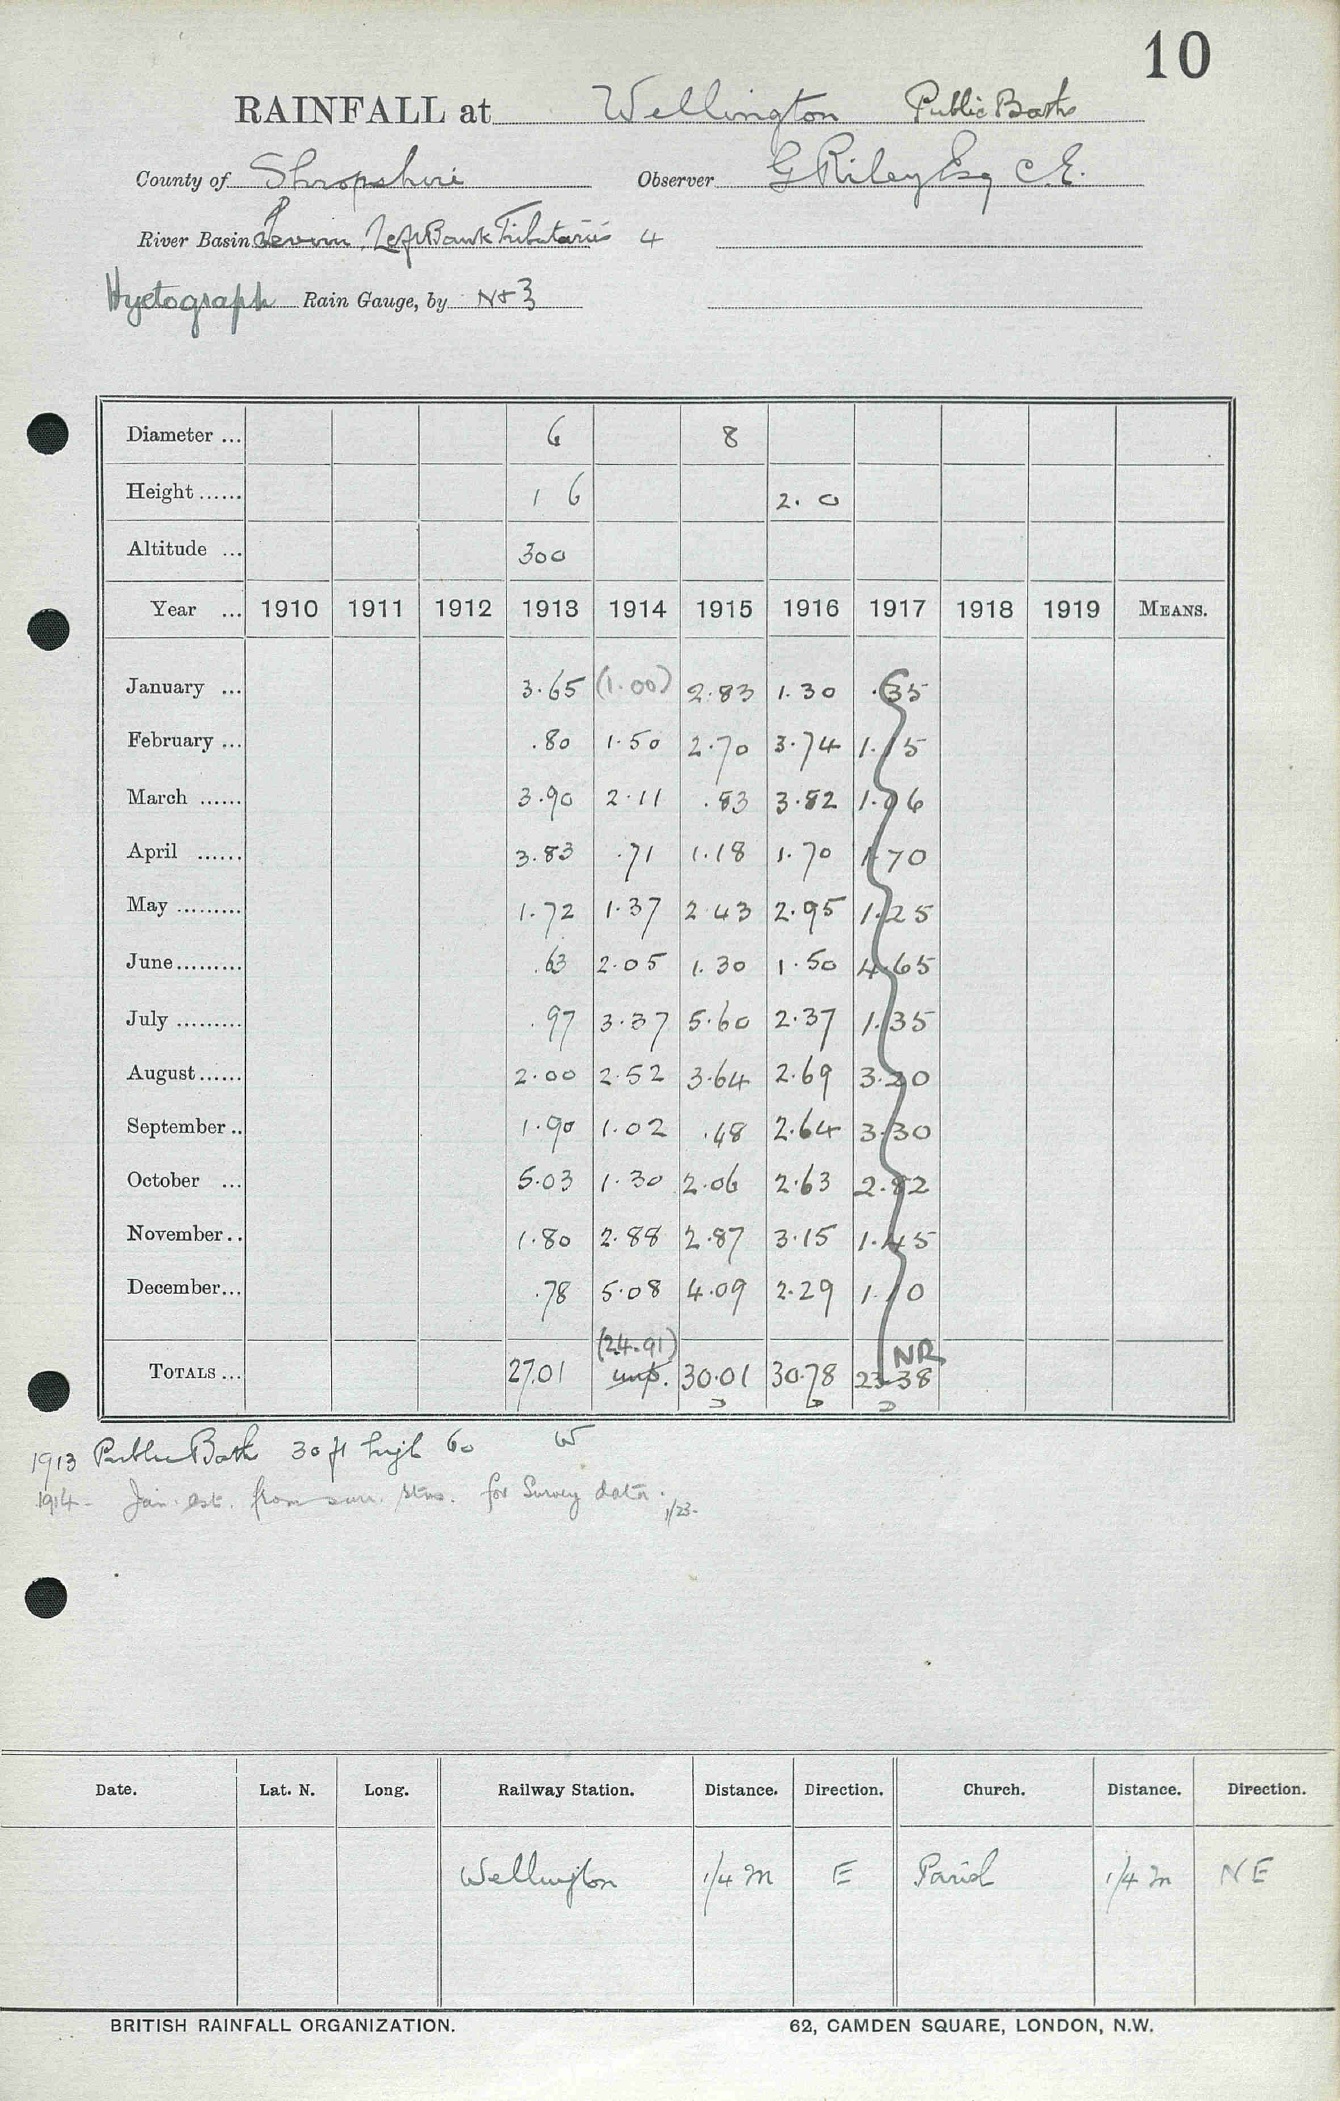 10
RAINFALL at Wellington Public Baths
County of Shropshire Observer G Riley Esq C.E.
River Basin Severn Left Bank Tributaries 4
Hyetograph Rain Gauge, by N & Z
Diameter ... 6 8
Height ...... 1 6 2. 0
Altitude ... 300
Year ... 1910 1911 1912 1913 1914 1915 1916 1917 1918 1919 MEANS.
January ... 3.65 (1.00) 2.83 1.30 .35
February ... .80 1.50 2.70 3.74 1.15
March ...... 3.90 2.11 .83 3.82 1.06
April ...... 3.83 .71 1.18 1.70 1.70
May ......... 1.72 1.37 2.43 2.95 1.25
June ......... .63 2.05 1.30 1.50 4.65
July ......... .97 3.37 5.60 2.37 1.35
August ...... 2.00 2.52 3.64 2.69 3.20
September .. 1.90 1.02 .48 2.64 3.30
October ... 5.03 1.30 2.06 2.63 2.82
November .. 1.80 2.88 2.87 3.15 1.45
December ... .78 5.08 4.09 2.29 1.10
(24.91) NR
TOTALS ... 27.01 imp. 30.01 30.78 23.38
1913 Public Bath 30 ft high 60 W
1914 - Jan. est. from surr. stns. for Survey data. 1/23.
Date. Lat. N. Long. Railway Station. Distance. Direction. Church. Distance. Direction.
Wellington 1/4 m E Parish 1/4 m NE
BRITISH RAINFALL ORGANIZATION. 62, CAMDEN SQUARE, LONDON, N.W.